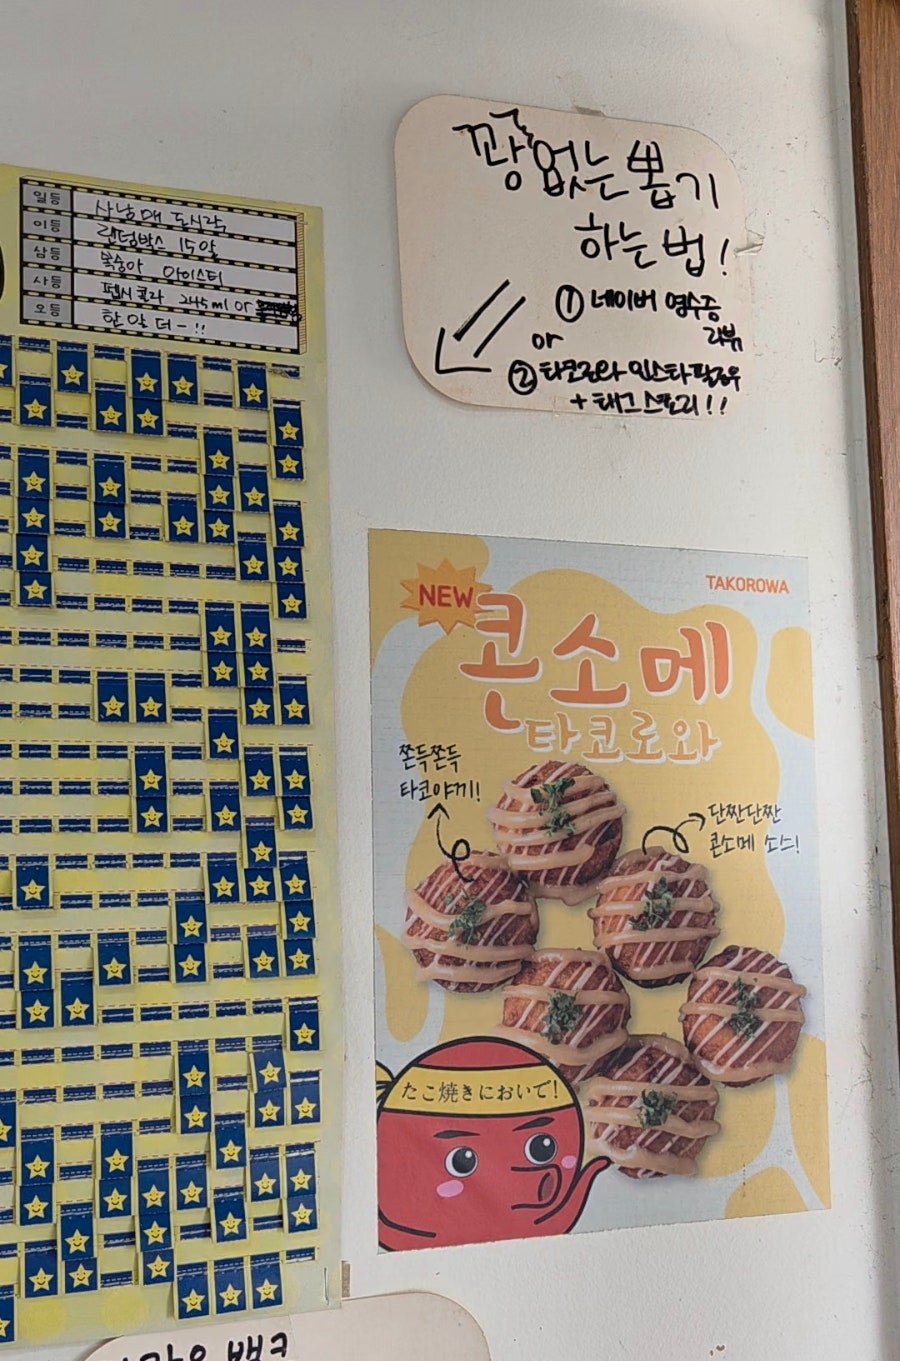 일등 사남매 도시락
이등 랜덤박스 15알
삼등 복숭아 아이스티
사등 펩시콜라 245ml or
오등 한알 더-!!
꽝없는 뽑기
하는 법!
① 네이버 영수증
리뷰
or
② 타코로와 인스타 팔로우
+ 태그 스토리!!
NEW
TAKOROWA
콘소메
타코로와
쫀득쫀득
타코야끼!
단짠단짠
콘소메 소스!
たこ焼きにおいで!